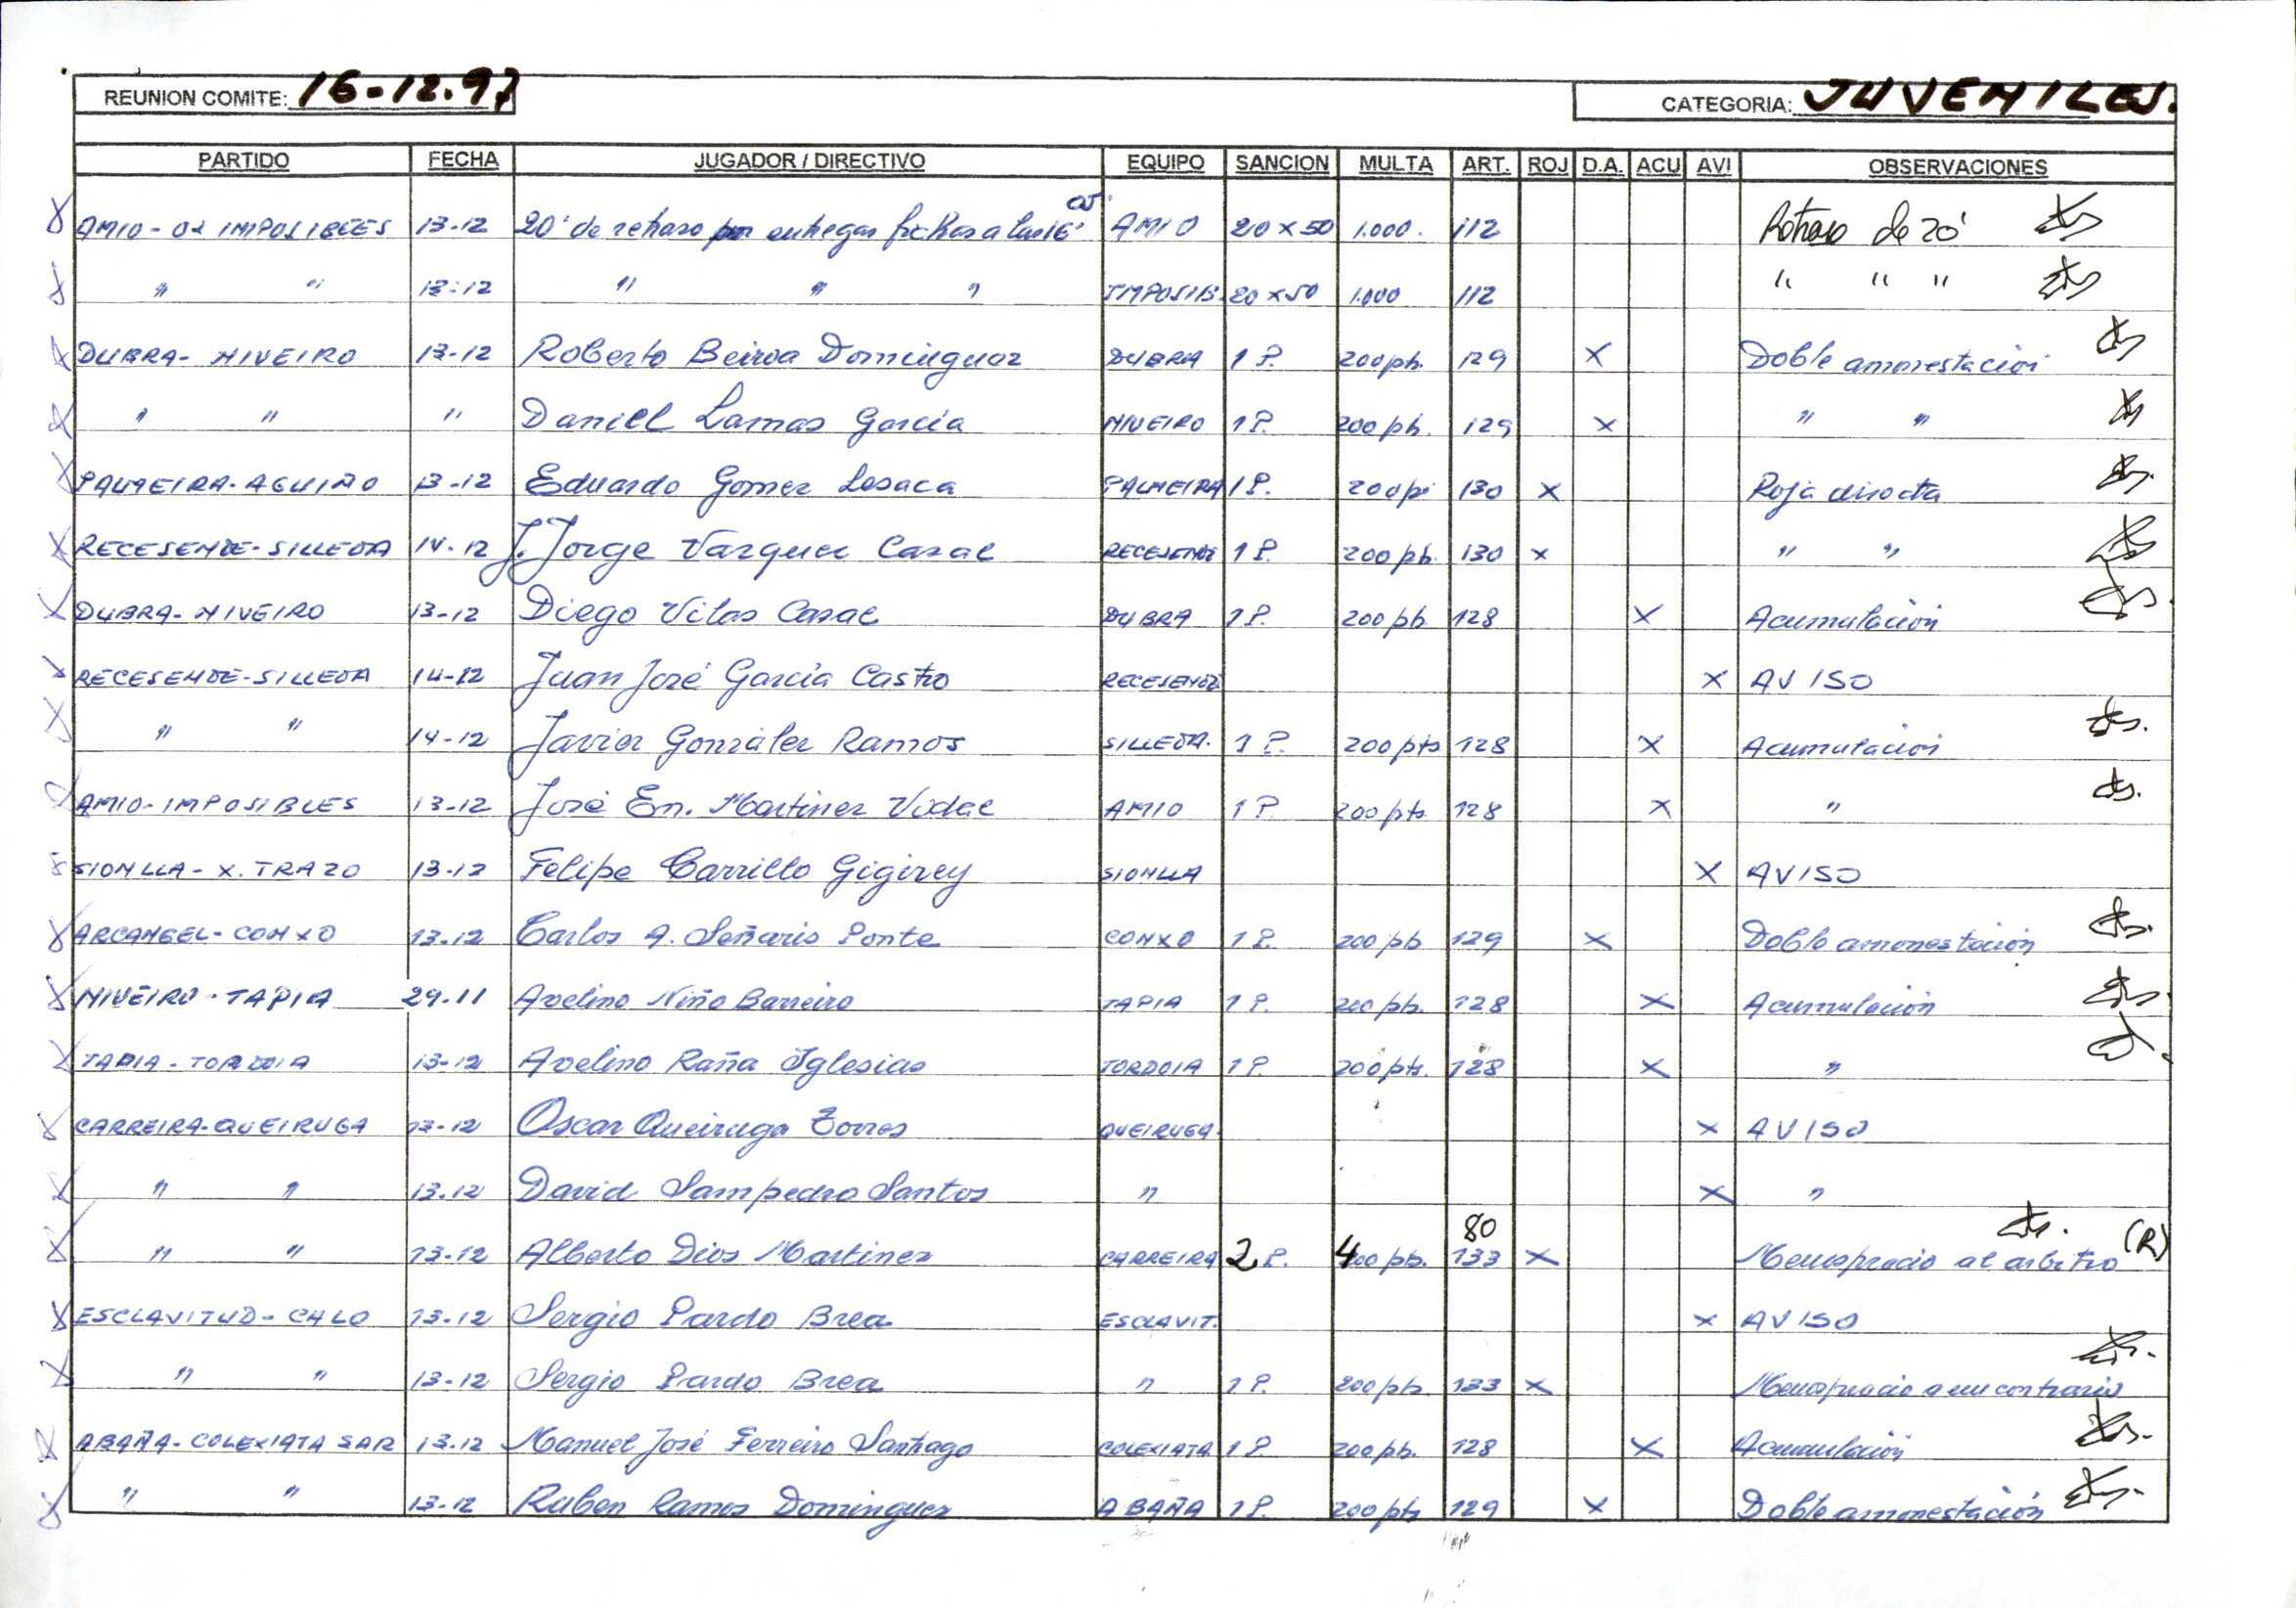 REUNION COMITE: 16-12.97 CATEGORIA: JUVENILES.
PARTIDO FECHA JUGADOR / DIRECTIVO EQUIPO SANCION MULTA ART. ROJ D.A. ACU AVI OBSERVACIONES
AMIO - OS IMPOSIBLES 13-12 20' de retraso entregar fichas a las 16' AMIO 20 x 50 1.000. 112 Retraso de 20'
" " 13-12 " " " IMPOSIB. 20 x 50 1.000 112 " " "
DUBRA - NIVEIRO 13-12 Roberto Beiroa Dominguez DUBRA 1 P. 200 pts. 129 X Doble amonestación
" " " Daniel Lamas García NIVEIRO 1 P. 200 pts. 129 X " "
PALMEIRA - AGUIÑO 13-12 Eduardo Gomez Losaca PALMEIRA 1 P. 200 pts 130 X Roja directa
RECESENDE - SILLEDA 14-12 J. Jorge Vazquez Casal RECESENDE 1 P. 200 pts. 130 X " "
DUBRA - NIVEIRO 13-12 Diego Vilas Casal DUBRA 1 P. 200 pts 128 X Acumulación
RECESENDE - SILLEDA 14-12 Juan José García Castro RECESENDE X AVISO
" " 14-12 Javier González Ramos SILLEDA. 1 P. 200 pts 128 X Acumulación
AMIO - IMPOSIBLES 13-12 José En. Martinez Vidal AMIO 1 P. 200 pts 128 X "
SIONLLA - X. TRAZO 13-12 Felipe Carrillo Gigirey SIONLLA X AVISO
ARCANGEL - CONXO 13-12 Carlos A. Señaris Ponte CONXO 1 P. 200 pts 129 X Doble amonestación
NIVEIRO - TAPIA 29-11 Avelino Niño Barreiro TAPIA 1 P. 200 pts. 128 X Acumulación
TAPIA - TORDOIA 13-12 Avelino Raña Iglesias TORDOIA 1 P. 200 pts. 128 X "
CARREIRA - QUEIRUGA 13-12 Oscar Queiruga Torres QUEIRUGA. X AVISO
" " 13-12 David Sampedro Santos " X "
" " 13-12 Alberto Dios Martinez CARREIRA 2 P. 400 pts. 80 133 X Menosprecio al arbitro (R)
ESCLAVITUD - CALO 13-12 Sergio Pardo Brea ESCLAVIT. X AVISO
" " 13-12 Sergio Pardo Brea " 1 P. 200 pts. 133 X Menosprecio a un contrario
ABAÑA - COLEXIATA SAR 13-12 Manuel José Ferreiro Santiago COLEXIATA 1 P. 200 pts. 128 X Acumulación
" " 13-12 Ruben Ramos Dominguez ABAÑA 1 P. 200 pts 129 X Doble amonestación